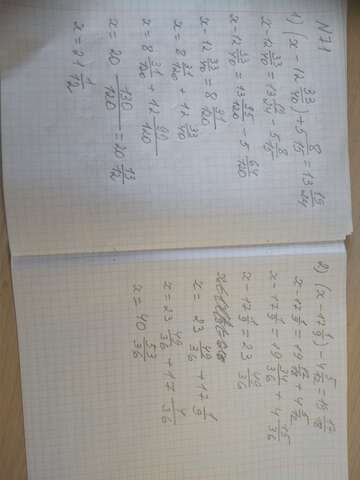 N71
1) (x - 12 33/40) + 5 8/15 = 13 19/24
x - 12 33/40 = 13 19/24 - 5 8/15
x - 12 33/40 = 13 95/120 - 5 64/120
x - 12 33/40 = 8 31/120
x = 8 31/120 + 12 33/40
x = 8 31/120 + 12 99/120
x = 20 130/120 = 20 13/12
x = 21 1/12
2) (x - 17 1/9) - 4 5/12 = 19 12/18
x - 17 1/9 = 19 12/18 + 4 5/12
x - 17 1/9 = 19 24/36 + 4 15/36
x - 17 1/9 = 23 49/36
x = 23 49/36 + 17 1/9
x = 23 49/36 + 17 4/36
x = 40 53/36